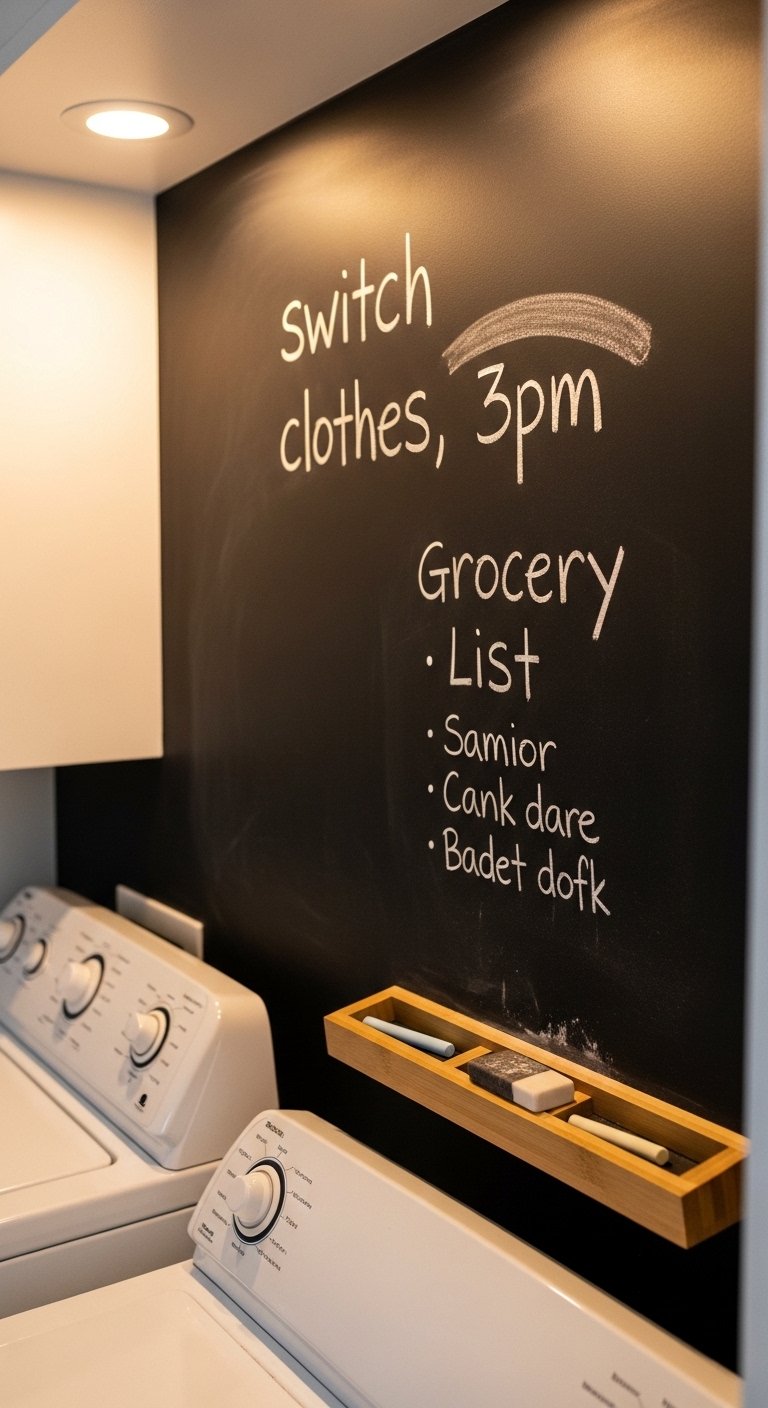 switch
clothes, 3pm
Grocery
• List
• Samior
• Cank dare
• Badet dofk